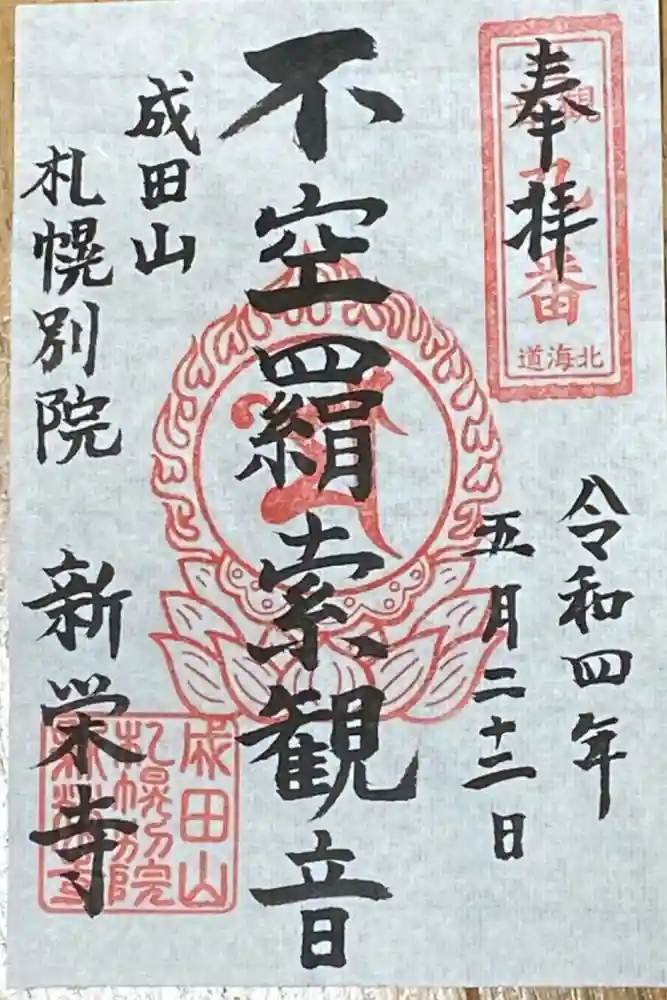 奉拝
観音
九番
北海道
令和四年
五月二十三日
不空羂索観音
成田山
札幌別院
新栄寺
成田山
札幌別院
新栄寺